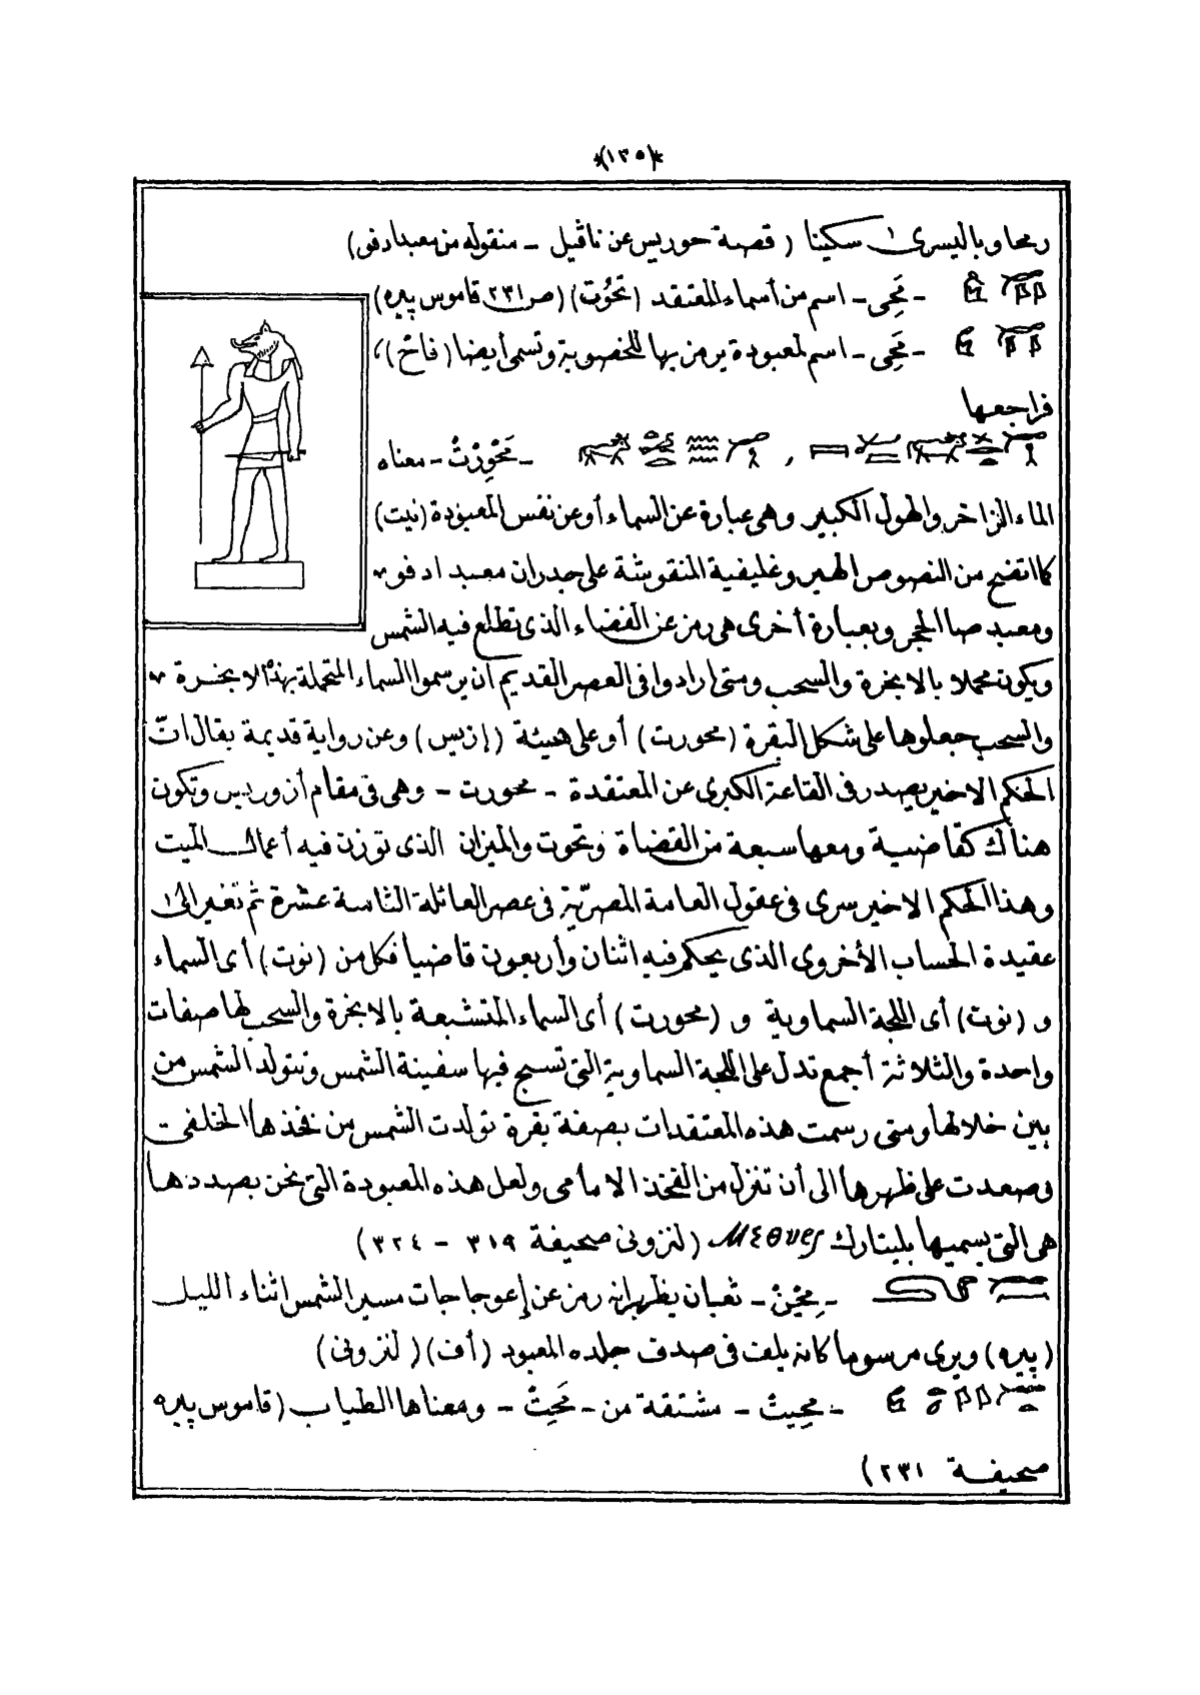 *(١٣٥)*
رمحا وباليسرى سكينا ( قصة حوريس عن ناڤيل ـ منقوله من معبد ادفو)
ـ مَحِى ـ اسم من أسماء المعتقد (تحُوت) (ص ٢٣١ قاموس پيره)
ـ مَحِى ـ اسم لمعبودة يرمز بها للخصوبة وتسمى أيضا (فاتح)،
فراجعها
ـ مَحْوِرْتْ ـ معناه
الماء الزاخر والهول الكبير وهى عبارة عن السماء أو عن نفس المعبودة (نيت)
كما اتضح من النصوص الهيروغليفية المنقوشة على جدران معبد ادفو
ومعبد صا الحجر وبعبارة أخرى هى رمز عن الفضاء الذى تطلع فيه الشمس
ويكون محملا بالابخرة والسحب ومتى ارادوا فى العصر القديم أن يرسموا السماء المتحملة بهذه الابخرة
والسحب جعلوها على شكل البقرة (محورت) أو على هيئة (إزيس) وعن رواية قديمة يقال ان
الحكم الاخير يصدر فى القاعة الكبرى عن المعتقدة ـ محورت ـ وهى فى مقام أزوريس وتكون
هناك كقاضية ومعها سبعة من القضاة وتحوت والميزان الذى توزن فيه أعمال الميت
وهذا الحكم الاخير سرى فى عقول العامة المصريّة فى عصر العائلة الثامنة عشرة ثم تغير الى
عقيدة الحساب الأخروى الذى يحكم فيه اثنان وأربعون قاضيا فكل من (نوت) أى السماء
و (نوت) أى اللجة السماوية و (محورت) أى السماء المتشبعة بالابخرة والسحب لها صفات
واحدة والثلاثة أجمع تدل على اللجة السماوية التى تسبح فيها سفينة الشمس وتتولد الشمس من
بين خلالها ومتى رسمت هذه المعتقدات بصفة بقرة تولدت الشمس من فخذها الخلفى
وصعدت على ظهرها الى أن تنزل من الفخذ الامامى ولعل هذه المعبودة التى نحن بصددها
هى التى يسميها بليتارك Μεθυες (لنزونى صحيفة ٣١٩ ـ ٣٢٤)
ـ مِحْنْ ـ ثعبان يظهر انه رمز عن إعوجاجات مسير الشمس اثناء الليل
(پيره) ويرى مرسوما كانه يلف فى صدف جلده المعبود (أف) ( لنزونى)
ـ محِيتْ ـ مشتقة من ـ مَحِيتْ ـ ومعناها الطياب (قاموس پيره
صحيفة ٢٣١)